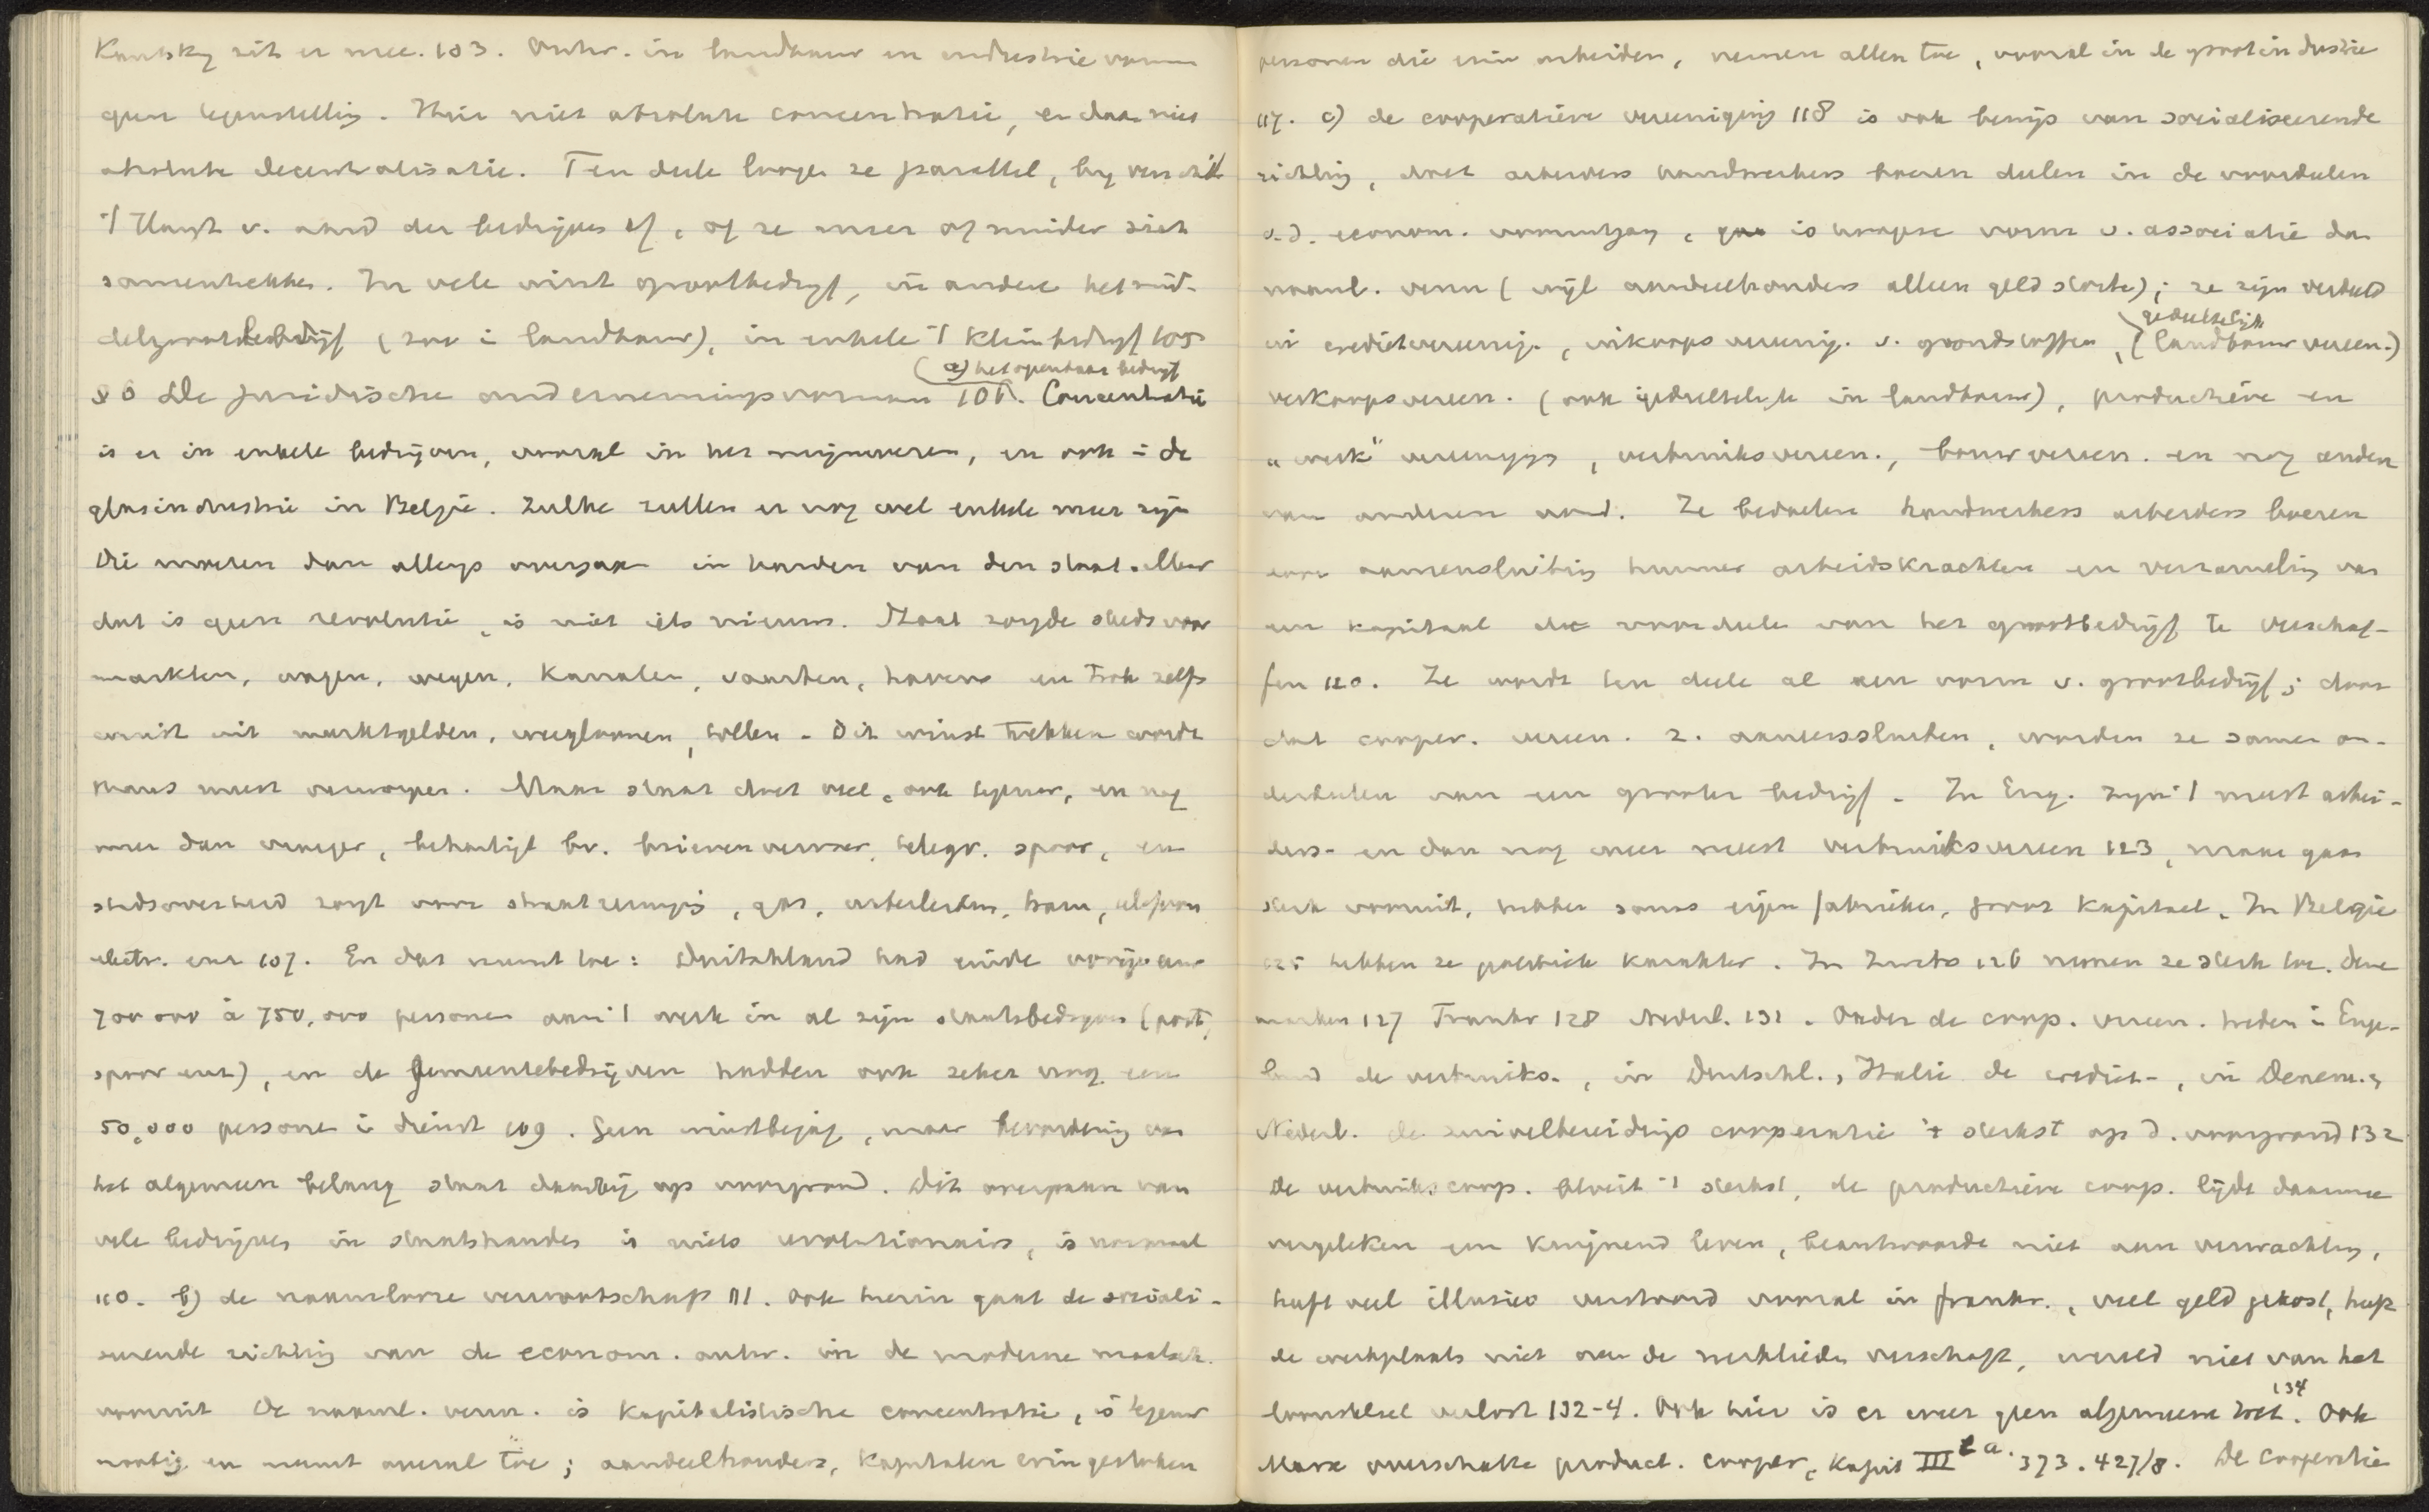 Kautsky zit er mee. 103. Ontw. in landbouw en industrie vormen
geen tegenstelling. Hier niet absolute concentratie, en daar niet
absolute decentralisatie. Ten deele loopen ze parallel, bij verschil
't Hangt v. aard der bedrijven af, of ze meer of minder zich
samentrekken. In vele wint grootbedrijf, in andere het mid-
delgrootbedrijf (zoo i landbouw), in enkele 't kleinbedrijf 105
(a) het openbaar bedrijf
§ 6 De juridische ondernemingsvormen 106. Concentratie
is er in enkele bedrijven, vooral in het mijnwezen, en ook i de
glasindustrie in België. Zulke zullen er nog wel enkele meer zijn
Die moeten dan allengs overgaan in handen van den staat. Maar
dat is geen revolutie, is niet iets nieuws. Staat zorgde steeds voor
markten, wagen, wegen, kanalen, vaarten, havens en trok zelfs
winst uit marktgelden, weegloonen, tollen. Dit winst trekken wordt
thans meest verworpen. Maar staat doet veel, ook tegenw., en nog
meer dan vroeger, behartigt bv. brievenvervoer, telegr. spoor, en
stadsoverheid zorgt voor straatreinig., gas, waterleiden, tram, telefoon
electr. enz 107. En dat neemt toe: Duitschland had einde vorige eeuw
700 000 à 750,000 personen aan 't werk in al zijn staatsbedrijven (post,
spoor enz), en de gemeentebedrijven hadden ook zeker nog een
50,000 personen i dienst 109. Geen winstbejag, maar bevordering van
het algemeen belang staat daarbij op voorgrond. Dit overgaan van
vele bedrijven in staatshanden is niets revolutionairs, is normaal
110. b) de naamlooze vennootschap 111. Ook hierin gaat de sociali-
seerende richting van de econom. ontw. in de moderne maatsch.
vooruit De naaml. venn. is kapitalistische concentratie, is tegenw
noodig en neemt overal toe; aandeelhouders, kapitalen erin gestoken
personen die erin arbeiden, nemen allen toe, vooral in de grootindustrie
117. c) de cooperatieve vereeniging 118 is ook bewijs van socialiseerende
richting, doet arbeiders handwerkers boeren deelen in de voordeelen
v.d. econom. vooruitgang, is hoogere vorm v. associatie dan
naaml. venn (wijl aandeelhouders alleen geld storten); ze zijn verdeeld
in credietvereenig., inkoopsvereenig. v. grondstoffen, (landbouwvereen.)
gedeeltelijk
verkoopsvereen. (ook gedeeltelijk in landbouw), productieve en
„werk" vereenigg, verbruiksvereen., bouwvereen. en nog andere
van anderen aard. Ze bedoelen handwerkers arbeiders boeren
door aaneensluiting hunner arbeidskrachten en verzameling van
een kapitaal de voordeelen van het grootbedrijf te verschaf-
fen 120. Ze wordt ten deele al een vorm v. grootbedrijf; door
dat cooper. vereen. z. aaneensluiten, worden ze samen on-
derdeelen van een grooter bedrijf. In Eng. zijn 't meest arbei-
ders- en dan nog meer meest verbruiksvereen 123, maar gaan
sterk vooruit, hebben soms eigen fabrieken, groot kapitaal. In België
125 hebben ze politiek karakter. In Duits 126 nemen ze sterk toe. Dene
marken 127 Frankr 128 Nederl. 131. Onder de coop. vereen. treden i Enge-
land de verbruiks-, in Duitschl., Italië de crediet-, in Denem. &
Nederl. de zuivelbereidings cooperatie 't sterkst op d. voorgrond 132
De verbruikscoop. bloeit 't sterkst, de productieve coop. lijdt daarmee
vergeleken een kwijnend leven, beantwoordde niet aan verwachting,
heeft veel illusies verstoord vooral in frankr., veel geld gekost, heeft
de werkplaats niet aan de werklieden verschaft, wereld niet van het
loonstelsel verlost 132-4. Ook hier is er weer geen algemeene wet. 134 Ook
Marx overschatte product. cooper., Kapit III 2 a. 373. 427/8. De cooperatie